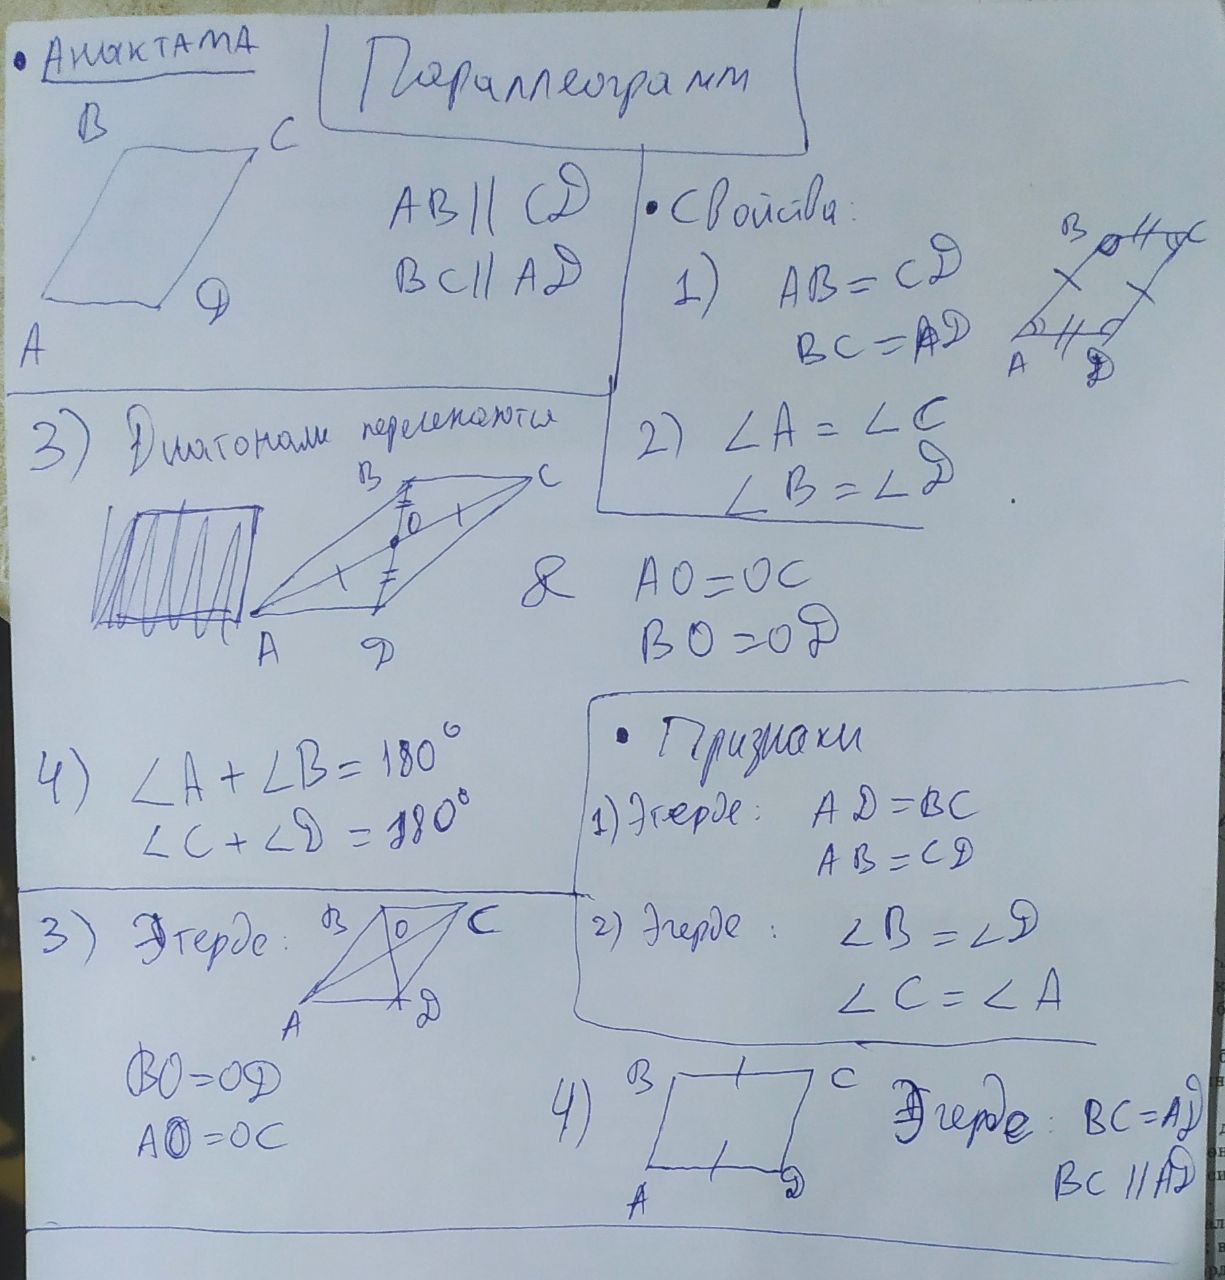 • Аныктама
Параллеограмм
B
C
A
D
AB || CD
BC || AD
• Свойства:
1) AB = CD
BC = AD
B
C
A
D
2) ∠A = ∠C
∠B = ∠D
3) Диагонали
B
C
O
A
D
&
AO = OC
BO = OD
4) ∠A + ∠B = 180°
∠C + ∠D = 180°
• Признаки
1) Эгерде: AD = BC
AB = CD
2) Эгерде: ∠B = ∠D
∠C = ∠A
3) Эгерде:
B
O
C
A
D
BO = OD
AO = OC
4)
B
C
A
D
Эгерде: BC = AD
BC || AD